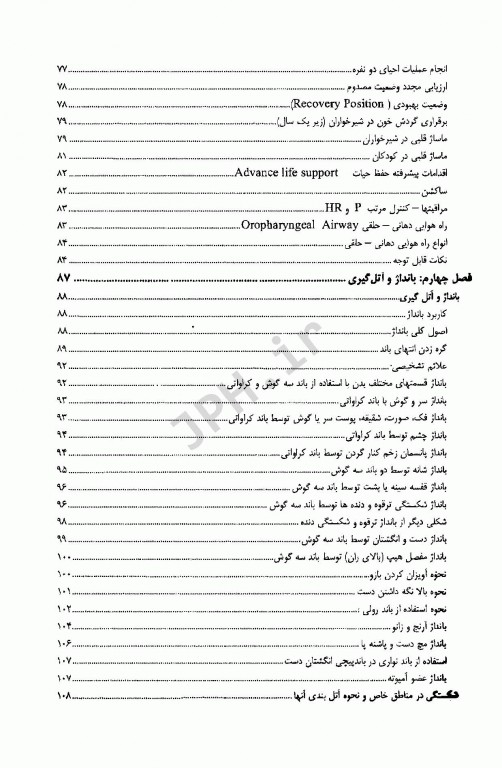 انجام عملیات احیای دو نفره ... ۷۷
ارزیابی مجدد وضعیت مصدوم ... ۷۸
وضعیت بهبودی ( Recovery Position) ... ۷۸
برقراری گردش خون در شیرخواران (زیر یک سال) ... ۷۹
ماساژ قلبی در شیرخواران ... ۷۹
ماساژ قلبی در کودکان ... ۸۱
اقدامات پیشرفته حفظ حیات Advance life support ... ۸۲
ساکشن ... ۸۲
مراقبتها – کنترل مرتب P و HR ... ۸۳
راه هوایی دهانی – حلقی Oropharyngeal Airway ... ۸۳
انواع راه هوایی دهانی – حلقی ... ۸۴
نکات قابل توجه ... ۸۴
فصل چهارم: بانداژ و آتل‌گیری ... ۸۷
بانداژ و آتل گیری ... ۸۸
کاربرد بانداژ ... ۸۸
اصول کلی بانداژ ... ۸۸
گره زدن انتهای باند ... ۸۹
علائم تشخیصی ... ۹۲
بانداژ قسمتهای مختلف بدن با استفاده از باند سه گوش و کراواتی ... ۹۲
بانداژ سر و گوش با باند کراواتی ... ۹۳
بانداژ فک، صورت، شقیقه، پوست سر یا گوش توسط باند کراواتی ... ۹۳
بانداژ چشم توسط باند کراواتی ... ۹۴
بانداژ پانسمان زخم کنار گردن توسط باند کراواتی ... ۹۴
بانداژ شانه توسط دو باند سه گوش ... ۹۵
بانداژ قفسه سینه یا پشت توسط باند سه گوش ... ۹۶
بانداژ شکستگی ترقوه و دنده ها توسط باند سه گوش ... ۹۶
شکلی دیگر از بانداژ ترقوه و شکستگی دنده ... ۹۸
بانداژ دست و انگشتان توسط باند سه گوش ... ۹۹
بانداژ مفصل هیپ (بالای ران) توسط باند سه گوش ... ۱۰۰
نحوه آویزان کردن بازو ... ۱۰۰
نحوه بالا نگه داشتن دست ... ۱۰۱
نحوه استفاده از باند رولی : ... ۱۰۲
بانداژ آرنج و زانو ... ۱۰۴
بانداژ مچ دست و پاشنه پا ... ۱۰۶
استفاده از باند نواری در باندپیچی انگشتان دست ... ۱۰۷
بانداژ عضو آمپوته ... ۱۰۷
شکستگی در مناطق خاص و نحوه آتل بندی آنها ... ۱۰۸
JPH.ir